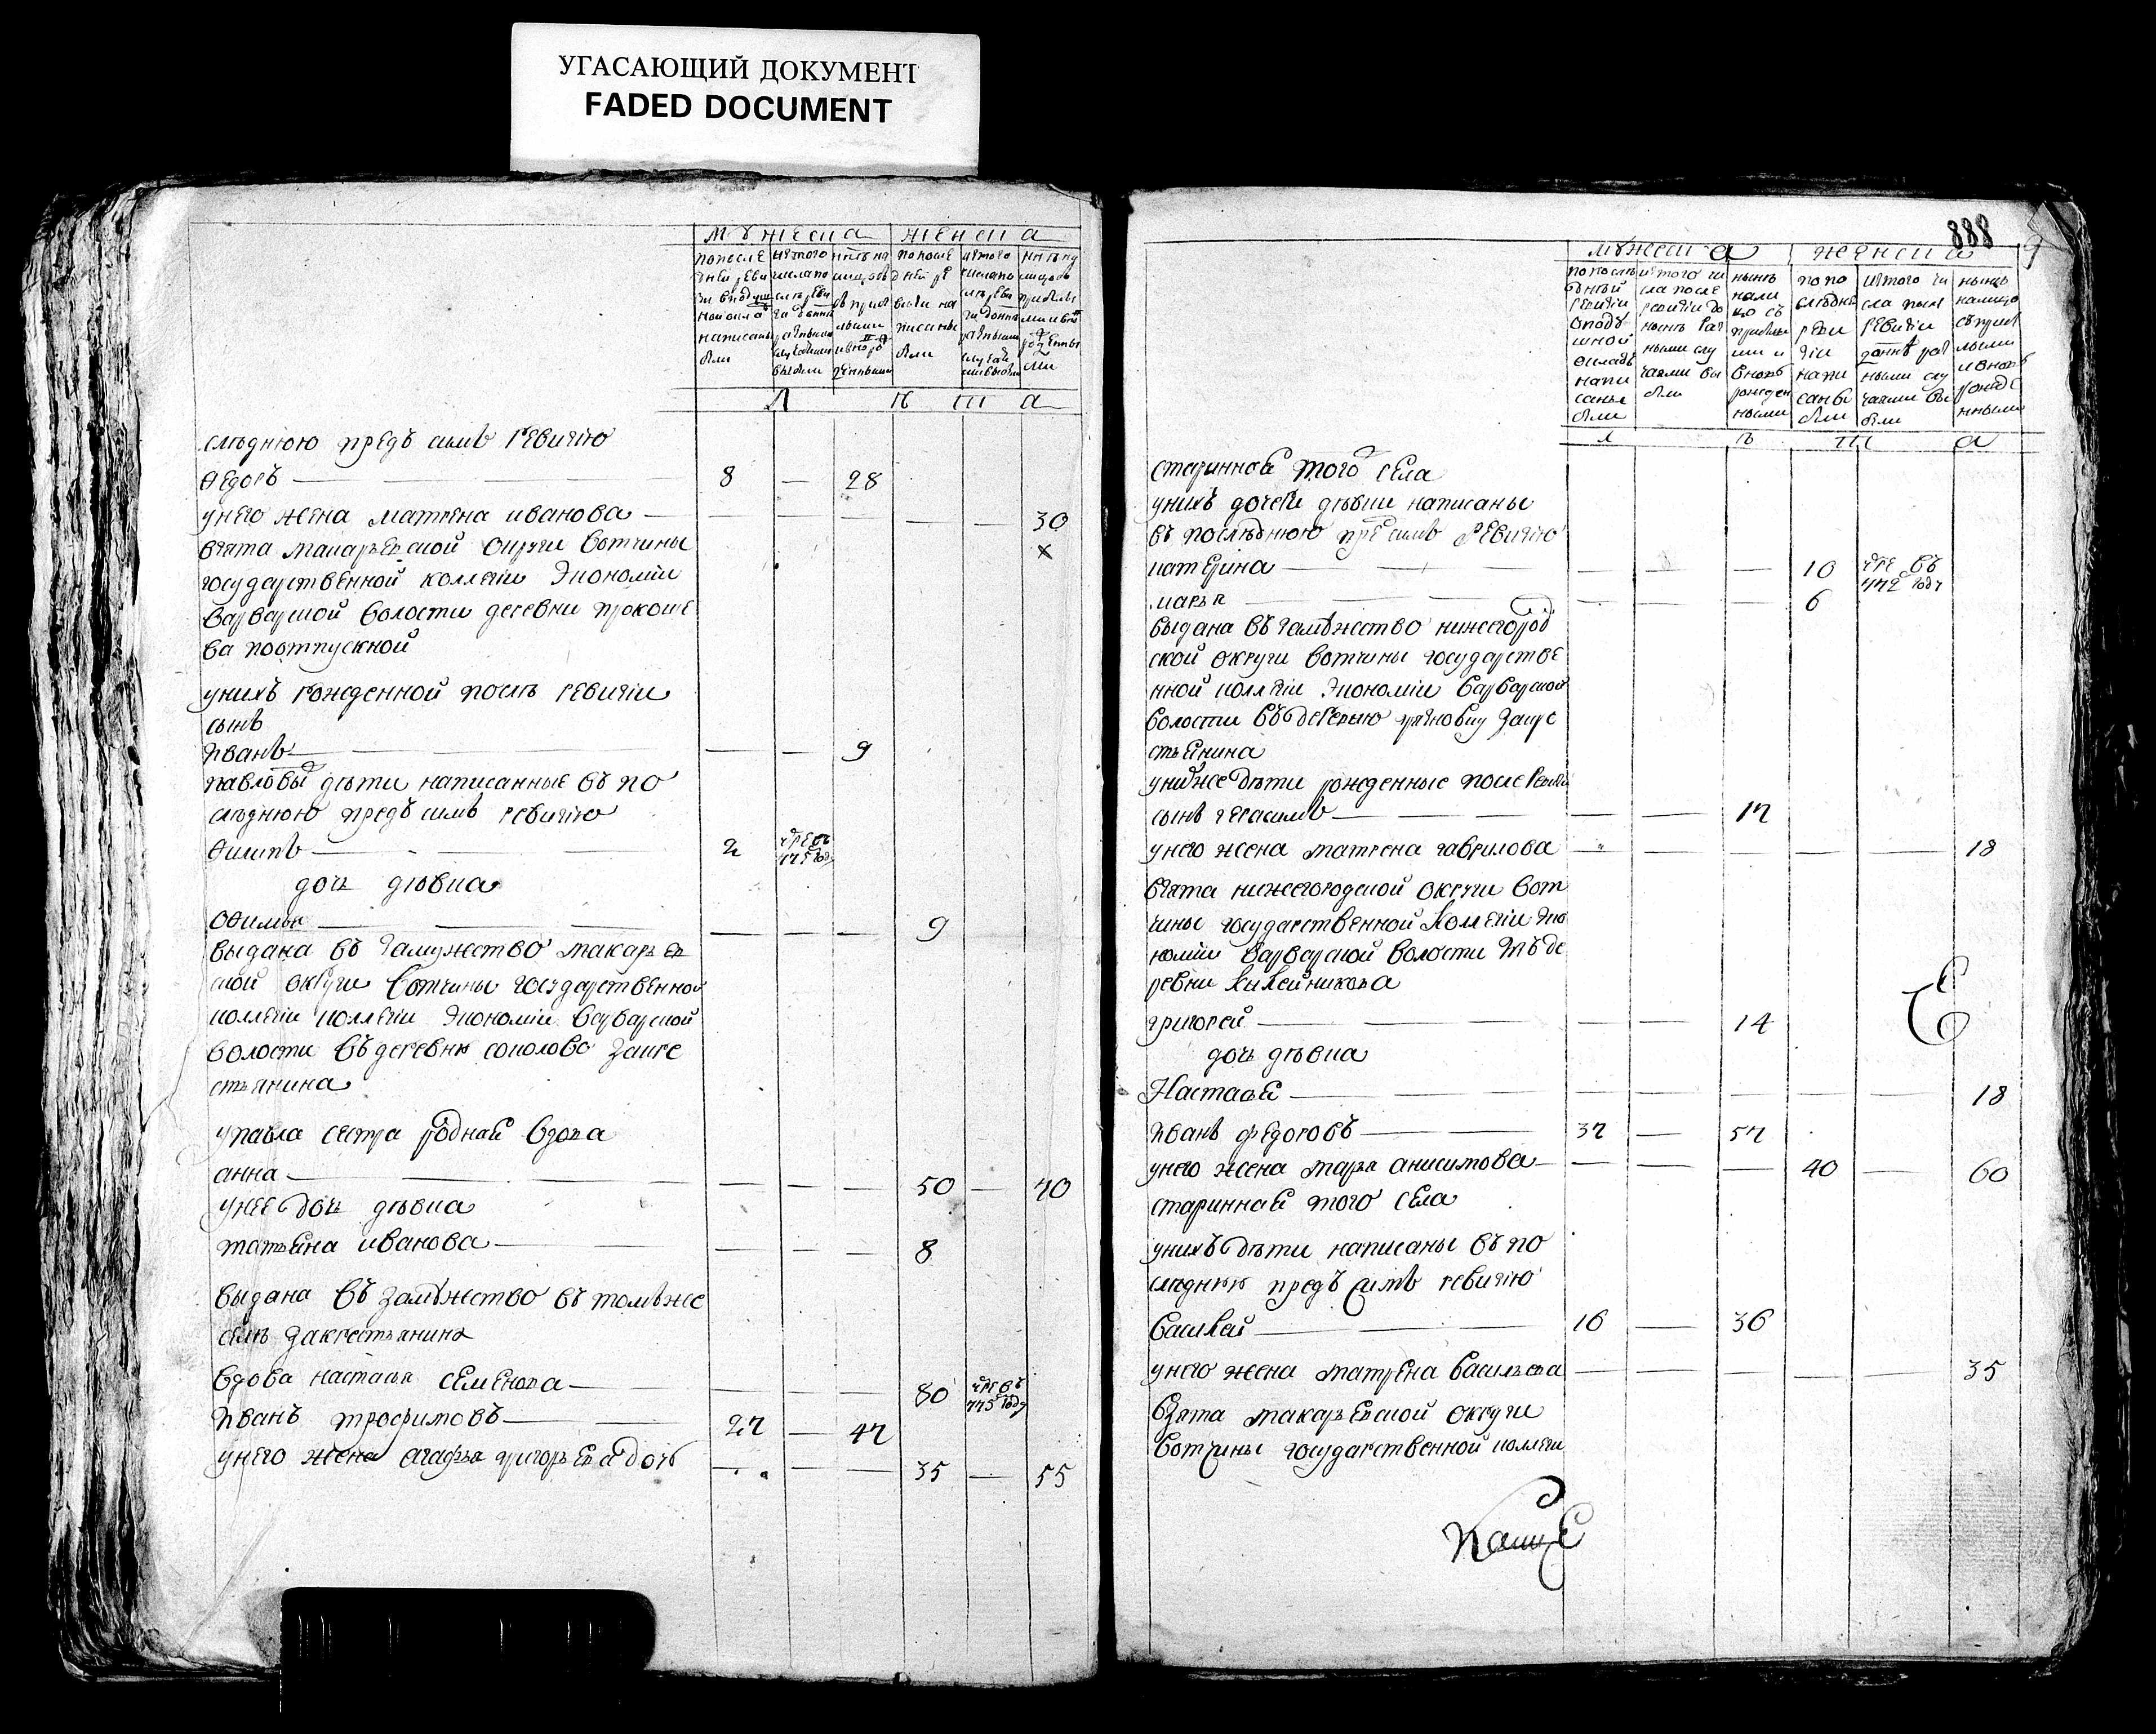 УГАСАЮЩИЙ ДОКУМЕНТ
FADED DOCUMENT
мужеска женска
по после
дней реви
зи в подуш
ной окла
написаны
были
л ѣ т а
следнюю предъ симъ ревизию
Ѳедоръ — 8 — 28
унего жена матрена иванова — — — — — 30
взята макарьевской округи вотчины х
государственной коллегии экономии
варварской волости деревни прокоше
ва поотпускной
унихъ рожденной послѣ ревизии
сынъ
иванъ — — — 9
павловы дѣти написанные въ по
слѣднюю предъ симъ ревизию
Филипъ — 2
дочь дѣвка
Офимья — — — — 9
выдана въ замужество макарьев
ской округи вотчины государственной
коллегии коллегии экономии варварской
волости въ деревню соколово закре
стьянина
упавла сестра родная вдова
анна — — — — 50 — 70
унее дочь дѣвка
татьяна иванова — — — — 8
выдана въ замужество въ томъже
селѣ закрестьянина
вдова настасья семенова — — — — 80 умре въ 775 году
иванъ трофимовъ — 27 — 47
унего жена агафья григорьева дочь — — — 35 — 55
888
мужеска женска
по послѣ
дней
ревизии
в поду
шной
окладъ
напи
саны
были
изъ того чи
сла после
ревизии до
нынѣ раз
ными слу
чаями вы
были
нынѣ
нали
цо съ
прибыл
ми и
вновь
рожден
ными
по по
слѣдне
реви
зии
напи
саны
были
изъ того чи
сла посл
ревизии
донынѣ раз
ными слу
чаями вы
были
нынѣ
налицо
съ приб
лыми
и вновь
рожде
нными
л ѣ т а
старинная того села
унихъ дочери дѣвки написаны
въ послѣднюю пред симъ ревизию
катерина — — — — 10 умре въ 772 году
марья — — — — 6
выдана въ замужество нижегород
ской округи вотчины государстве
нной коллегии экономии варварской
волости въ деревню закре
стьянина
унихже дѣти рожденные после ревизии
сынъ герасимъ — — — 17
унего жена матрена гаврилова — — — — — 18
взята нижегородской округи вот
чины государственной коллегии эко
номии варварской волости из де
ревни
григорей — — — 14
дочь дѣвка
Настасья — — — — — 18
иванъ федоровъ — 37 — 57
унего жена марья анисимова — — — 40 — 60
старинная того села
унихъ дѣти написаны въ по
следнюю предъ симъ ревизию
василей — 16 — 36
унего жена матрена васильева — — — — — 35
взята макарьевской округи
вотчины государственной коллегии